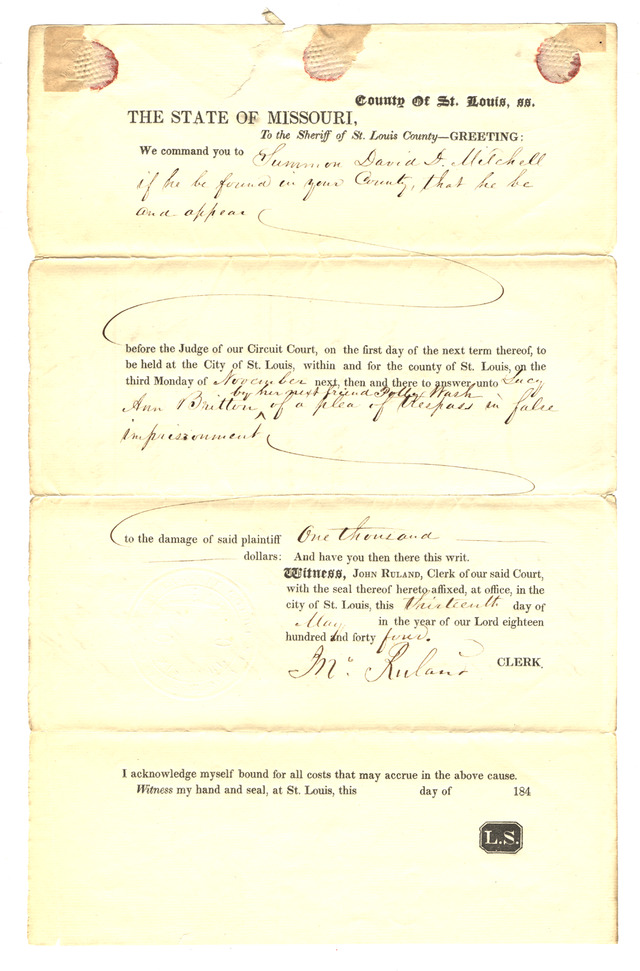 County Of St. Louis, ss.
THE STATE OF MISSOURI,
To the Sheriff of St. Louis County—GREETING:
We command you to Summon David D. Mitchell
if he be found in your County, that he be
and appear
before the Judge of our Circuit Court, on the first day of the next term thereof, to
be held at the City of St. Louis, within and for the county of St. Louis, on the
third Monday of November next, then and there to answer unto Lucy
by her next friend Polly Wash
Ann Britton ^ of a plea of trespass in false
imprisonment
to the damage of said plaintiff One thousand
dollars: And have you then there this writ.
Witness, JOHN RULAND, Clerk of our said Court,
with the seal thereof hereto affixed, at office, in the
city of St. Louis, this thirteenth day of
May in the year of our Lord eighteen
hundred and forty four.
Jno. Ruland CLERK.
I acknowledge myself bound for all costs that may accrue in the above cause.
Witness my hand and seal, at St. Louis, this day of 184
L.S.